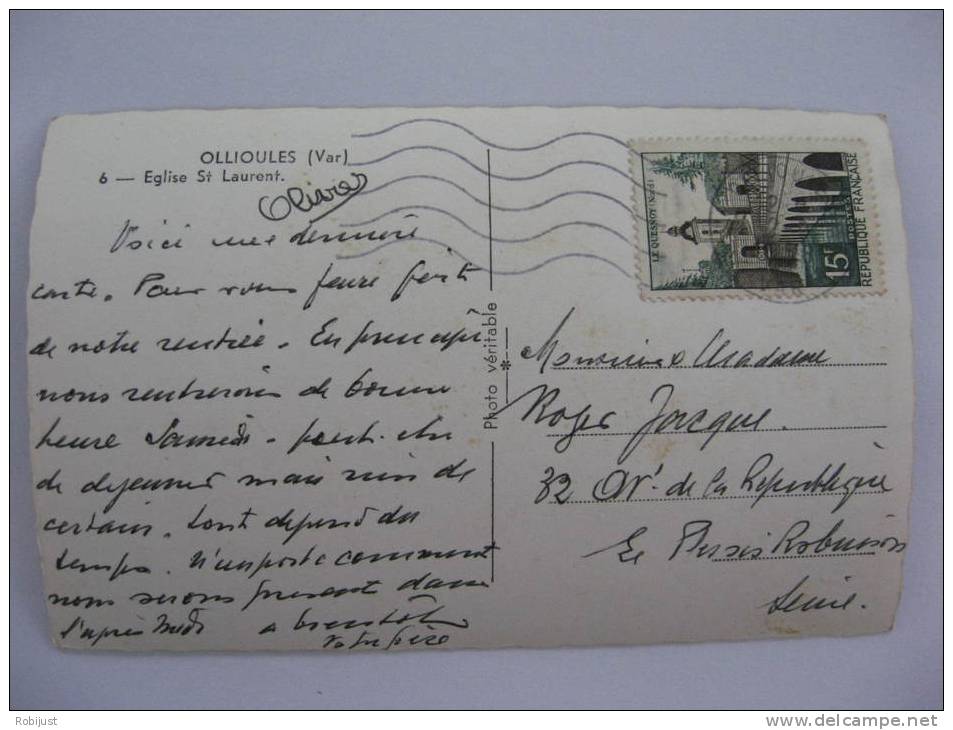 OLLIOULES (Var)
6 — Eglise St Laurent.
Olivier
Voici une dernière
carte. Pour vous faire part
de notre rentrée. En principe
nous rentrerons de bonne
heure Samedi - peut-être
de dejeuner mais rien de
certain. tout depend du
temps. N'importe comment
nous serons present dans
l'après Midi a bientôt
Votre père
Photo véritable
LE QUESNOY (Nord)
15F
POSTES
REPUBLIQUE FRANÇAISE
Monsieur & Madame
Roger Jacque.
32 Av. de la République
Le Plessis Robinson
Seine.
Robijust
www.delcampe.net